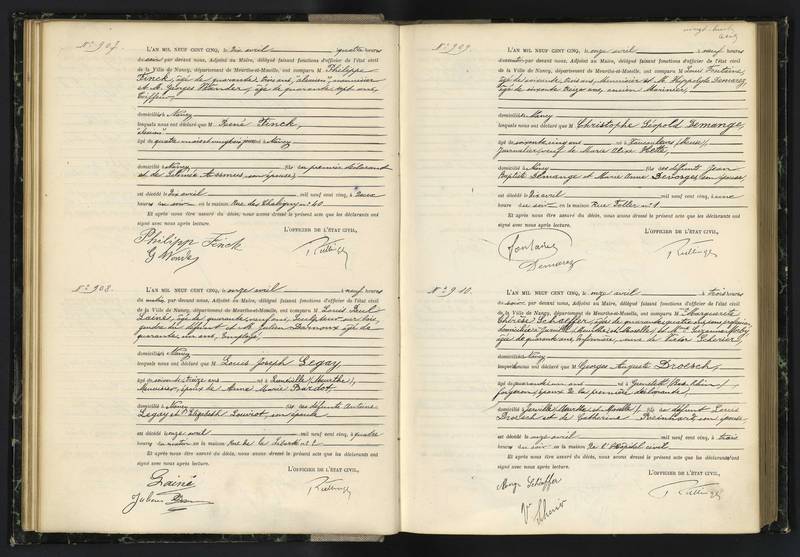 N° 907.
L'AN MIL NEUF CENT CINQ, le Dix avril quatre heures
du soir par devant nous, Adjoint au Maire, délégué faisant fonctions d'officier de l'état civil
de la Ville de Nancy, département de Meurthe-et-Moselle, ont comparu M. Philippe
Finck, âgé de quarante trois ans,
et M. Georges Wander, âgé de quarante sept ans,
Coiffeur,
domiciliés à Nancy
lesquels nous ont déclaré que M René Finck,
âgé de quatre mois né à Nancy
domicilié à Nancy fils du premier déclarant
et de
est décédé le Dix avril mil neuf cent cinq, à Douze
heures du soir en la maison Rue de Chaligny n° 40
Et après nous être assuré du décès, nous avons dressé le présent acte que les déclarants ont
signé avec nous après lecture.
L'OFFICIER DE L'ÉTAT CIVIL,
Philipp Finck
N° 908.
L'AN MIL NEUF CENT CINQ, le onze avril à neuf heures
du matin, par devant nous, Adjoint au Maire, délégué faisant fonctions d'officier de l'état civil
de la Ville de Nancy, département de Meurthe-et-Moselle, ont comparu M. Louis Paul
Lainé, âgé de quarante neuf ans, Sculpteur sur bois,
gendre du défunt et M. Julien âgé de
quarante un ans, Employé,
domiciliés à Nancy
lesquels nous ont déclaré que M Louis Joseph Legay,
âgé de soixante treize ans né à (Meurthe),
Menuisier, époux de Anne Marie Bardot,
domicilié à Nancy fils des défunts Antoine
Legay et Elisabeth Louviot, son épouse
est décédé le onze avril mil neuf cent cinq, à quatre
heures du matin en la maison Rue de la n° 2
Et après nous être assuré du décès, nous avons dressé le présent acte que les déclarants ont
signé avec nous après lecture.
L'OFFICIER DE L'ÉTAT CIVIL,
Lainé
N° 909.
L'AN MIL NEUF CENT CINQ, le onze avril à neuf heures
du matin par devant nous, Adjoint au Maire, délégué faisant fonctions d'officier de l'état civil
de la Ville de Nancy, département de Meurthe-et-Moselle, ont comparu M. Louis Fontaine,
âgé de soixante trois ans, Menuisier et M. Hippolyte Demarez,
âgé de soixante treize ans, ancien Marinier,
domiciliés à Nancy
lesquels nous ont déclaré que M Christophe Léopold Demange,
âgé de soixante cinq ans né à (Meuse),
Journalier, veuf de Marie
domicilié à Nancy fils des défunts Jean
Baptiste Demange et Marie Anne son épouse,
est décédé le Dix avril mil neuf cent cinq, à une
heure du soir en la maison Rue Foller n° 1
Et après nous être assuré du décès, nous avons dressé le présent acte que les déclarants ont
signé avec nous après lecture.
L'OFFICIER DE L'ÉTAT CIVIL,
Fontaine
Demarez
N° 910.
L'AN MIL NEUF CENT CINQ, le onze avril à trois heures
du soir, par devant nous, Adjoint au Maire, délégué faisant fonctions d'officier de l'état civil
de la Ville de Nancy, département de Meurthe-et-Moselle, ont comparu Marguerite
Thérèse Schaeffer, âgée de quarante quatre ans,
domiciliée à Jarville (Meurthe et Moselle) et Suzanne
âgée de quarante ans, Infirmière, veuve de Victor
domiciliée à Nancy
lesquels nous ont déclaré que M Georges Auguste Droesch,
âgé de quarante un ans né à (Bas-Rhin),
époux de la première déclarante,
domicilié à Jarville (Meurthe et Moselle) fils des défunts Louis
Droesch et de Catherine Reinhart son épouse,
est décédé le onze avril mil neuf cent cinq, à trois
heures du soir en la maison de l'Hôpital civil
Et après nous être assuré du décès, nous avons dressé le présent acte que les déclarants ont
signé avec nous après lecture.
L'OFFICIER DE L'ÉTAT CIVIL,